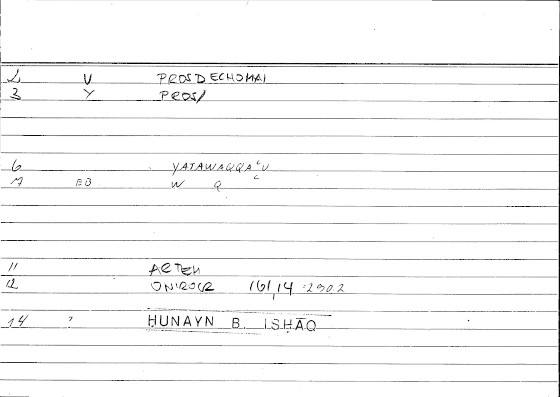 2 V PROSDECHOMAI
3 Y PROS/
6 YATAWAQQAʿU
7 EB W Q
11 ARTEM
12 ONIROCR 161,14 2902
14 ? HUNAYN B. ISHĀQ